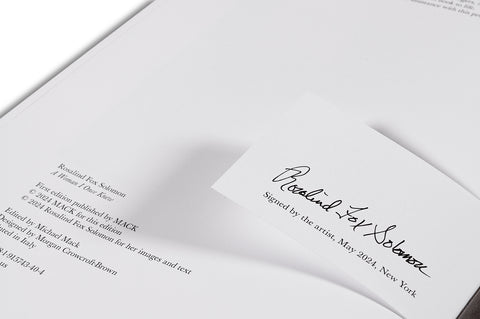 book to life.
assistance with this pro
Rosalind Fox Solomon
A Woman I Once Knew
First edition published by MACK
© 2024 MACK for this edition
© 2024 Rosalind Fox Solomon for her images and text
Edited by Michael Mack
Designed by Morgan Crowcroft-Brown
in Italy
-915743-40-4
us
Rosalind Fox Solomon
Signed by the artist, May 2024, New York